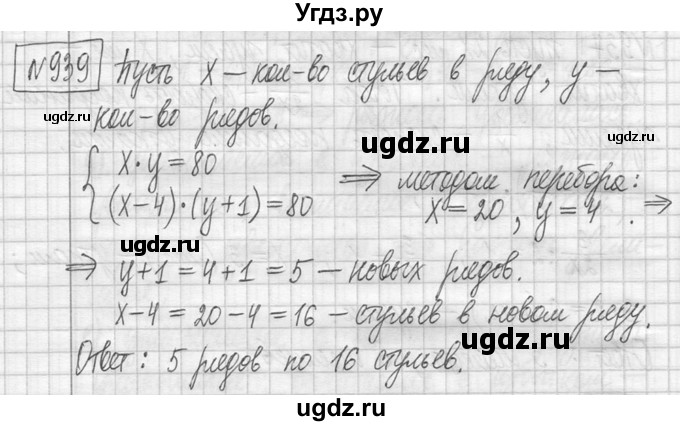 Угдз.ру
№939 Пусть x – кол-во стульев в ряду, y –
кол-во рядов.
x·y=80
(x-4)·(y+1)=80
⇒ методом перебора:
x=20, y=4. ⇒
⇒ y+1=4+1=5 – новых рядов.
x-4=20-4=16 – стульев в новом ряду.
Ответ: 5 рядов по 16 стульев.
ugdz.ru
ugdz.ru
ugdz.ru
ugdz.ru
ugdz.ru
ugdz.ru
ugdz.ru
ugdz.ru